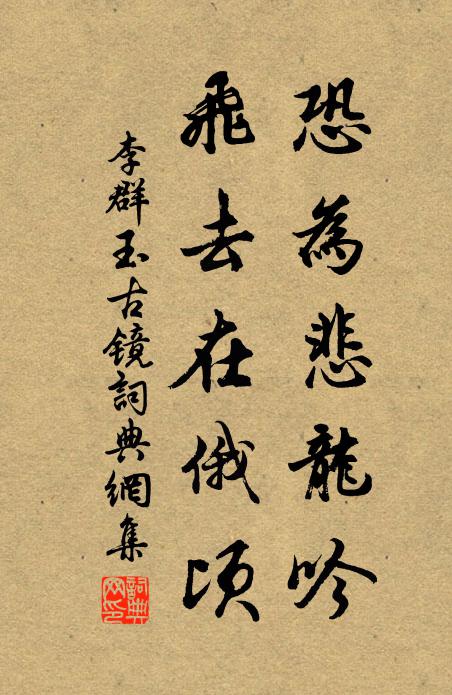 恐為悲龍吟
飛去在俄頃
李群玉古鏡詞典網集
詞典網印